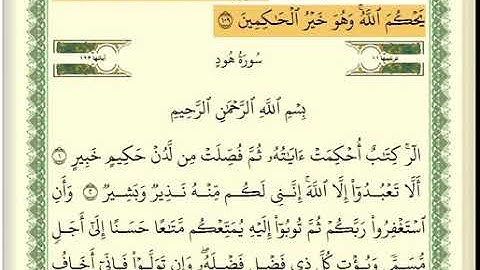 يَحْكُمَ ٱللَّهُۚ وَهُوَ خَيْرُ ٱلْحَـٰكِمِينَ ١٠٩
ترتيبها ١١ سُورَةُ هُودٍ آياتها ١٢٣
بِسْمِ ٱللَّهِ ٱلرَّحْمَـٰنِ ٱلرَّحِيمِ
الٓرۚ كِتَـٰبٌ أُحْكِمَتْ ءَايَـٰتُهُۥ ثُمَّ فُصِّلَتْ مِن لَّدُنْ حَكِيمٍ خَبِيرٍ ١
أَلَّا تَعْبُدُوٓا۟ إِلَّا ٱللَّهَۚ إِنَّنِى لَكُم مِّنْهُ نَذِيرٌ وَبَشِيرٌ ٢ وَأَنِ
ٱسْتَغْفِرُوا۟ رَبَّكُمْ ثُمَّ تُوبُوٓا۟ إِلَيْهِ يُمَتِّعْكُم مَّتَـٰعًا حَسَنًا إِلَىٰٓ أَجَلٍ
مُّسَمًّى وَيُؤْتِ كُلَّ ذِى فَضْلٍ فَضْلَهُۥۖ وَإِن تَوَلَّوْا۟ فَإِنِّىٓ أَخَافُ